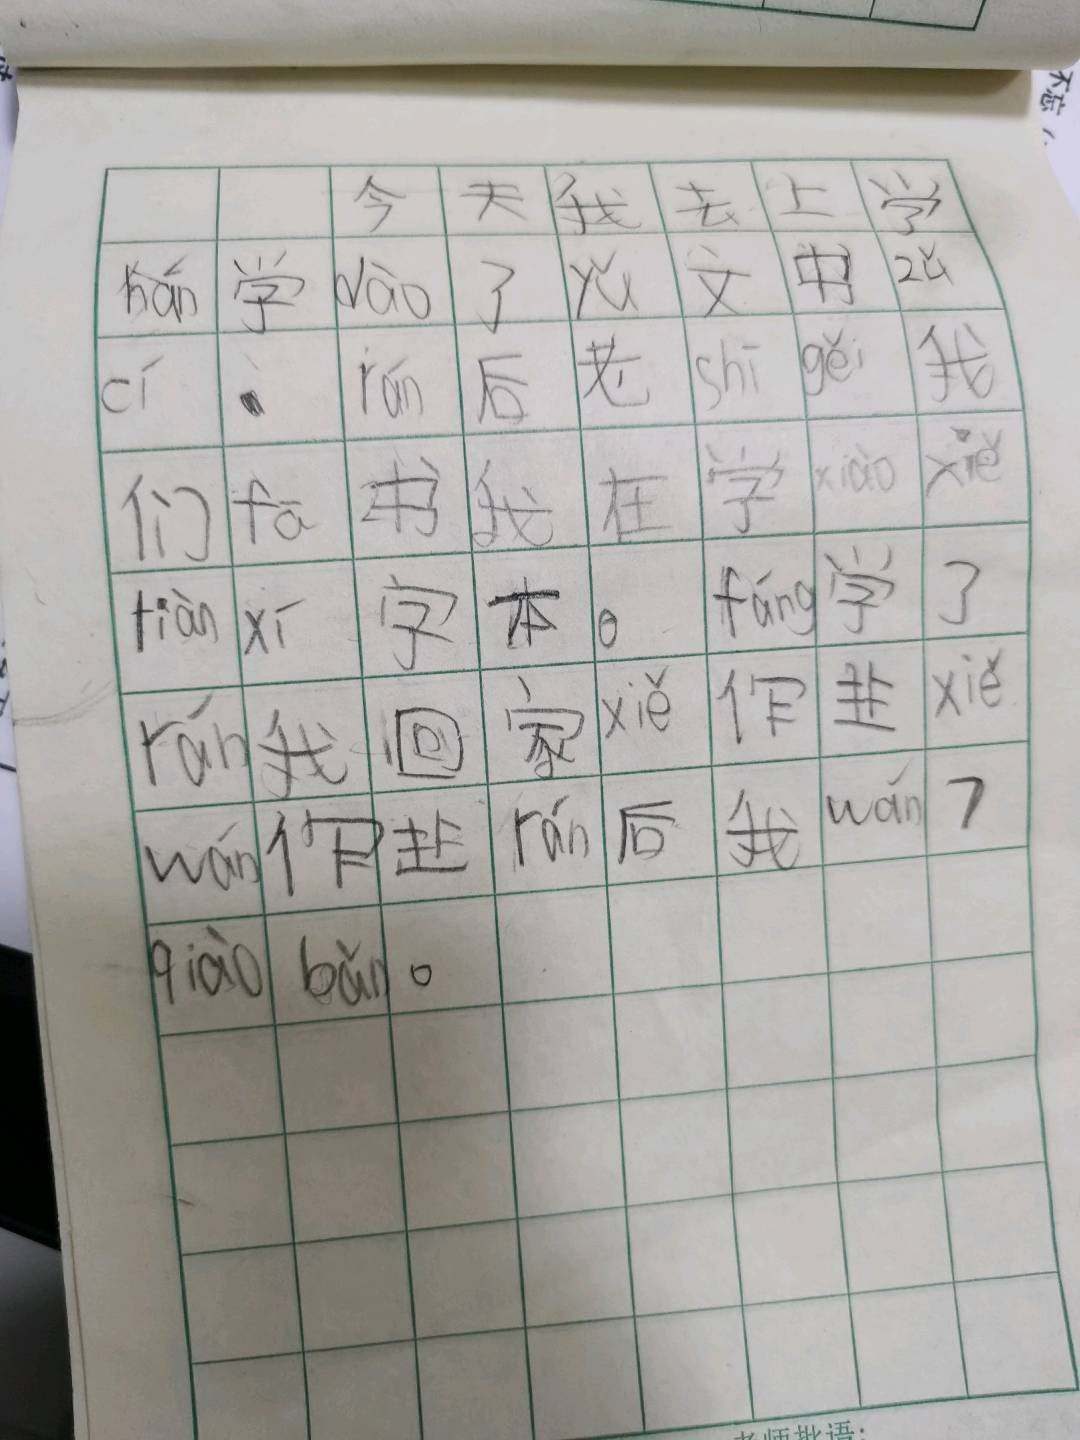 今天我去上学
hán学dào了yǔ文书zǔ
cí、rán后老shī gěi我
们fā书我在学xiào xiě
liàn xí字本。fáng学了
rán我回家xiě作业xiě
wán作业rán后我wán了
qiào bǎn。
老师批语: